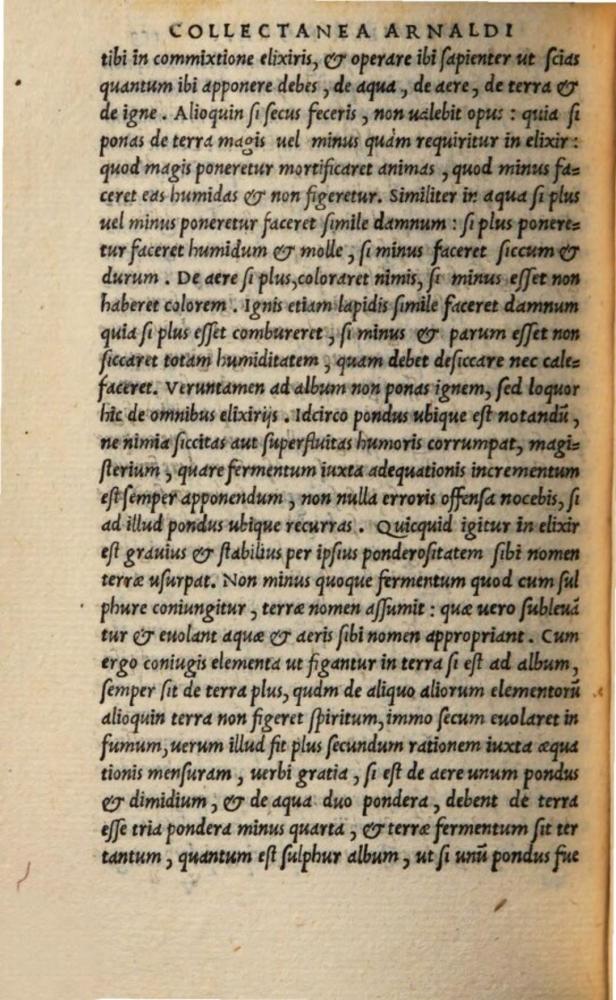 COLLECTANEA ARNALDI
tibi in commixtione elixiris, & operare ibi sapienter ut scias
quantum ibi apponere debes, de aqua, de aere, de terra &
de igne. Alioquin si secus feceris, non ualebit opus: quia si
ponas de terra magis uel minus quàm requiritur in elixir:
quod magis poneretur mortificaret animas, quod minus fa=
ceret eas humidas & non figeretur. Similiter in aqua si plus
uel minus poneretur faceret simile damnum: si plus ponere=
tur faceret humidum & molle, si minus faceret siccum &
durum. De aere si plus, coloraret nimis, si minus esset non
haberet colorem. Ignis etiam lapidis simile faceret damnum
quia si plus esset combureret, si minus & parum esset non
siccaret totam humiditatem, quam debet desiccare nec cale=
faceret. Veruntamen ad album non ponas ignem, sed loquor
hîc de omnibus elixirijs. Idcirco pondus ubique est notandũ,
ne nimia siccitas aut superfluitas humoris corrumpat, magi=
sterium, quare fermentum iuxta adequationis incrementum
est semper apponendum, non nulla erroris offensa nocebis, si
ad illud pondus ubique recurras. Quicquid igitur in elixir
est grauius & stabilius per ipsius ponderositatem sibi nomen
terræ usurpat. Non minus quoque fermentum quod cum sul
phure coniungitur, terræ nomen assumit: quæ uero subleuã
tur & euolant aquæ & aeris sibi nomen appropriant. Cum
ergo coniugis elementa ut figantur in terra si est ad album,
semper sit de terra plus, quàm de aliquo aliorum elementorũ
alioquin terra non figeret spiritum, immo secum euolaret in
fumum, uerum illud fit plus secundum rationem iuxta æqua
tionis mensuram, uerbi gratia, si est de aere unum pondus
& dimidium, & de aqua duo pondera, debent de terra
esse tria pondera minus quarta, & terræ fermentum sit ter
tantum, quantum est sulphur album, ut si unũ pondus fue